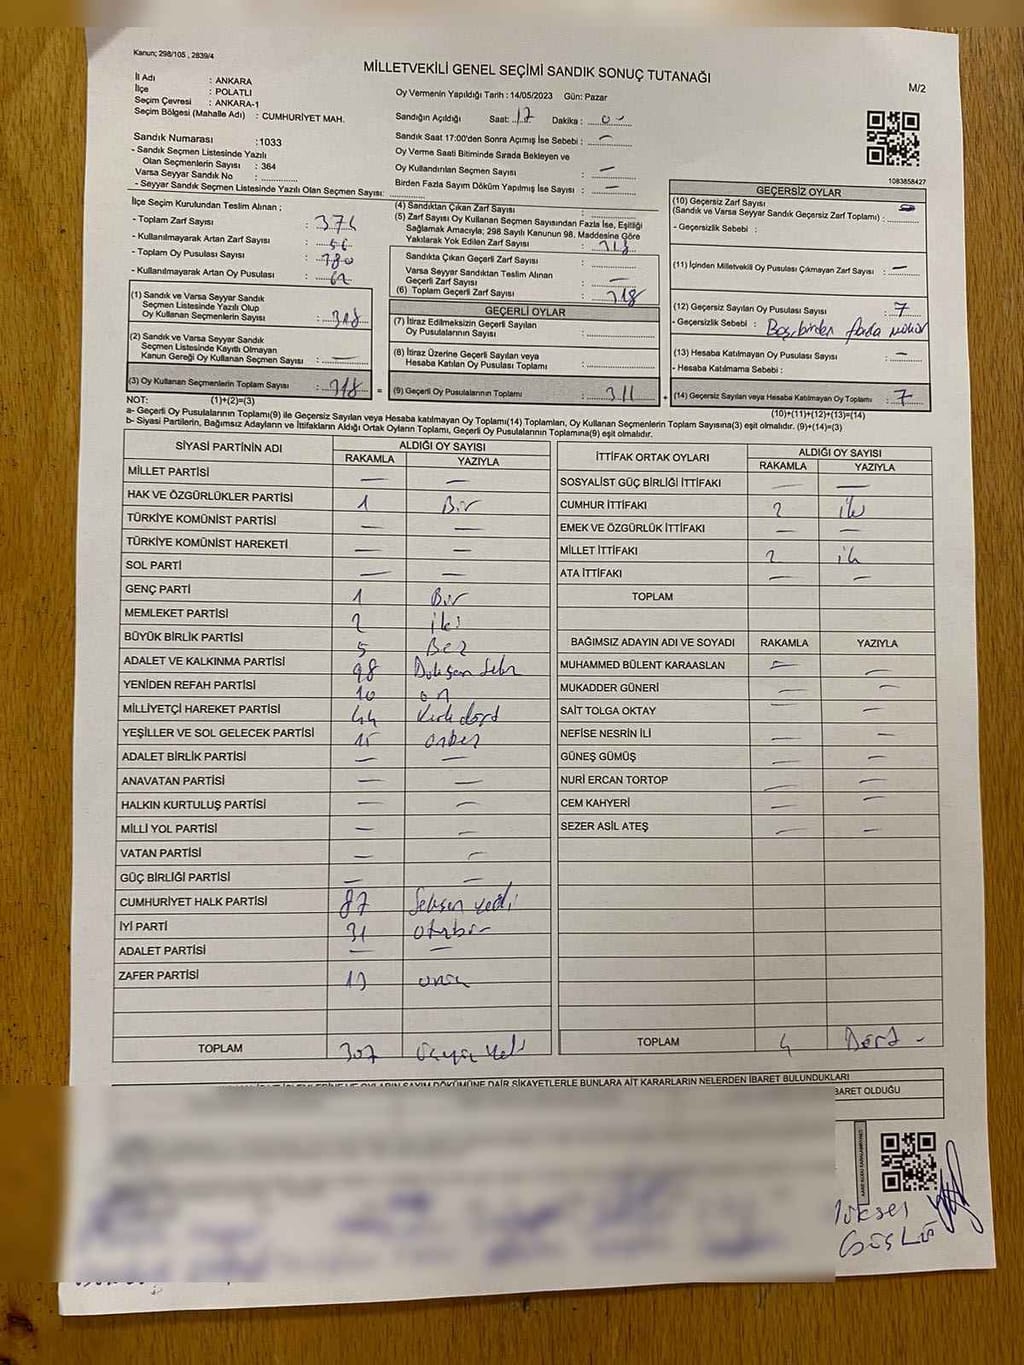 Kanun; 298/105 , 2839/4
MİLLETVEKİLİ GENEL SEÇİMİ SANDIK SONUÇ TUTANAĞI
M/2
İl Adı : ANKARA
İlçe : POLATLI
Seçim Çevresi : ANKARA-1
Seçim Bölgesi (Mahalle Adı) : CUMHURİYET MAH.
Sandık Numarası : 1033
- Sandık Seçmen Listesinde Yazılı
Olan Seçmenlerin Sayısı : 364
Varsa Seyyar Sandık No :
- Seyyar Sandık Seçmen Listesinde Yazılı Olan Seçmen Sayısı:
Oy Vermenin Yapıldığı Tarih : 14/05/2023 Gün: Pazar
Sandığın Açıldığı Saat: 17 Dakika : 0 -
Sandık Saat 17:00'den Sonra Açımış İse Sebebi : —
Oy Verme Saati Bitiminde Sırada Bekleyen ve
Oy Kullandırılan Seçmen Sayısı : —
Birden Fazla Sayım Döküm Yapılmış İse Sayısı : —
1083858427
İlçe Seçim Kurulundan Teslim Alınan ;
- Toplam Zarf Sayısı : 374
- Kullanılmayarak Artan Zarf Sayısı : 56
- Toplam Oy Pusulası Sayısı : 380
- Kullanılmayarak Artan Oy Pusulası : 62
(1) Sandık ve Varsa Seyyar Sandık
Seçmen Listesinde Yazılı Olup
Oy Kullanan Seçmenlerin Sayısı : 318
(2) Sandık ve Varsa Seyyar Sandık
Seçmen Listesinde Kayıtlı Olmayan
Kanun Gereği Oy Kullanan Seçmen Sayısı : —
(3) Oy Kullanan Seçmenlerin Toplam Sayısı : 318 =
(4) Sandıktan Çıkan Zarf Sayısı :
(5) Zarf Sayısı Oy Kullanan Seçmen Sayısından Fazla İse, Eşitliği
Sağlamak Amacıyla; 298 Sayılı Kanunun 98. Maddesine Göre
Yakılarak Yok Edilen Zarf Sayısı : 318
Sandıkta Çıkan Geçerli Zarf Sayısı :
Varsa Seyyar Sandıktan Teslim Alınan
Geçerli Zarf Sayısı : —
(6) Toplam Geçerli Zarf Sayısı : 318
GEÇERLİ OYLAR
(7) İtiraz Edilmeksizin Geçerli Sayılan
Oy Pusulalarının Sayısı :
(8) İtiraz Üzerine Geçerli Sayılan veya
Hesaba Katılan Oy Pusulası Toplamı :
(9) Geçerli Oy Pusulalarının Toplamı : 311 +
GEÇERSİZ OYLAR
(10) Geçersiz Zarf Sayısı
(Sandık ve Varsa Seyyar Sandık Geçersiz Zarf Toplamı) :
- Geçersizlik Sebebi :
(11) İçinden Milletvekili Oy Pusulası Çıkmayan Zarf Sayısı : —
(12) Geçersiz Sayılan Oy Pusulası Sayısı : 7
- Geçersizlik Sebebi : Boş, birden fazla mühür
(13) Hesaba Katılmayan Oy Pusulası Sayısı : —
- Hesaba Katılmama Sebebi :
(14) Geçersiz Sayılan veya Hesaba Katılmayan Oy Toplamı : 7
NOT: (1)+(2)=(3) (10)+(11)+(12)+(13)=(14)
a- Geçerli Oy Pusulalarının Toplamı(9) ile Geçersiz Sayılan veya Hesaba katılmayan Oy Toplamı(14) Toplamları, Oy Kullanan Seçmenlerin Toplam Sayısına(3) eşit olmalıdır. (9)+(14)=(3)
b- Siyasi Partilerin, Bağımsız Adayların ve İttifakların Aldığı Ortak Oyların Toplamı, Geçerli Oy Pusulalarının Toplamına(9) eşit olmalıdır.
SİYASİ PARTİNİN ADI ALDIĞI OY SAYISI
RAKAMLA YAZIYLA
MİLLET PARTİSİ — —
HAK VE ÖZGÜRLÜKLER PARTİSİ 1 Bir
TÜRKİYE KOMÜNİST PARTİSİ — —
TÜRKİYE KOMÜNİST HAREKETİ — —
SOL PARTİ — —
GENÇ PARTİ 1 Bir
MEMLEKET PARTİSİ 2 iki
BÜYÜK BİRLİK PARTİSİ 5 Beş
ADALET VE KALKINMA PARTİSİ 98 Doksan sekiz
YENİDEN REFAH PARTİSİ 10 on
MİLLİYETÇİ HAREKET PARTİSİ 44 Kırk dört
YEŞİLLER VE SOL GELECEK PARTİSİ 15 onbeş
ADALET BİRLİK PARTİSİ — —
ANAVATAN PARTİSİ — —
HALKIN KURTULUŞ PARTİSİ — —
MİLLİ YOL PARTİSİ — —
VATAN PARTİSİ — —
GÜÇ BİRLİĞİ PARTİSİ — —
CUMHURİYET HALK PARTİSİ 87 Seksen yedi
İYİ PARTİ 31 otuzbir
ADALET PARTİSİ — —
ZAFER PARTİSİ 13 onüç
TOPLAM 307 Üçyüz yedi
İTTİFAK ORTAK OYLARI ALDIĞI OY SAYISI
RAKAMLA YAZIYLA
SOSYALİST GÜÇ BİRLİĞİ İTTİFAKI — —
CUMHUR İTTİFAKI 2 iki
EMEK VE ÖZGÜRLÜK İTTİFAKI — —
MİLLET İTTİFAKI 2 iki
ATA İTTİFAKI — —
TOPLAM
BAĞIMSIZ ADAYIN ADI VE SOYADI RAKAMLA YAZIYLA
MUHAMMED BÜLENT KARAASLAN — —
MUKADDER GÜNERİ — —
SAİT TOLGA OKTAY — —
NEFİSE NESRİN İLİ — —
GÜNEŞ GÜMÜŞ — —
NURİ ERCAN TORTOP — —
CEM KAHYERİ — —
SEZER ASİL ATEŞ — —
TOPLAM 4 Dört -
SAYIM DÖKÜMÜNE DAİR ŞİKAYETLERLE BUNLARA AİT KARARLARIN NELERDEN İBARET BULUNDUKLARI
BARET OLDUĞU